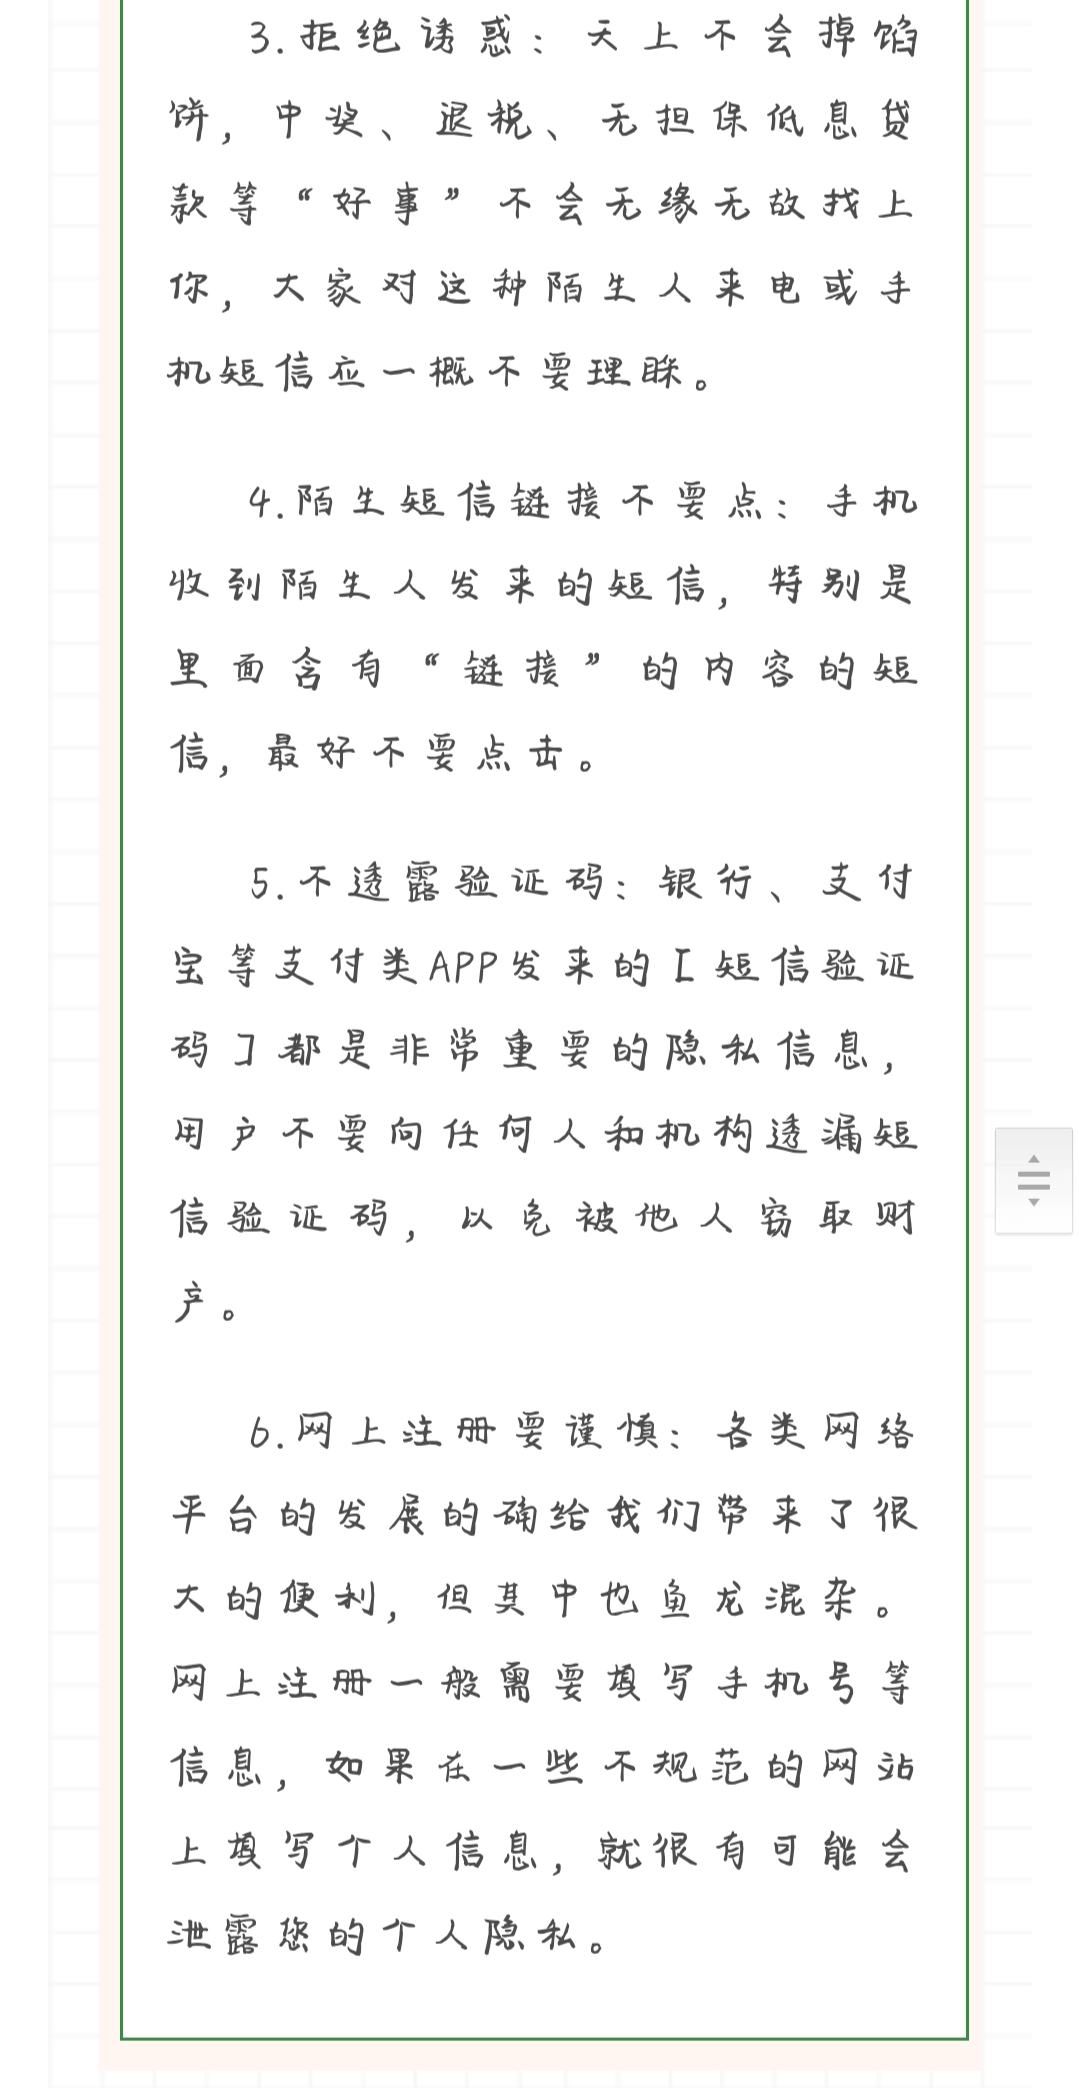 3.拒绝诱惑：天上不会掉馅
饼，中奖、退税、无担保低息贷
款等“好事”不会无缘无故找上
你，大家对这种陌生人来电或手
机短信应一概不要理睬。
4.陌生短信链接不要点：手机
收到陌生人发来的短信，特别是
里面含有“链接”的内容的短
信，最好不要点击。
5.不透露验证码：银行、支付
宝等支付类APP发来的［短信验证
码］都是非常重要的隐私信息，
用户不要向任何人和机构透漏短
信验证码，以免被他人窃取财
产。
6.网上注册要谨慎：各类网络
平台的发展的确给我们带来了很
大的便利，但其中也鱼龙混杂。
网上注册一般需要填写手机号等
信息，如果在一些不规范的网站
上填写个人信息，就很有可能会
泄露您的个人隐私。